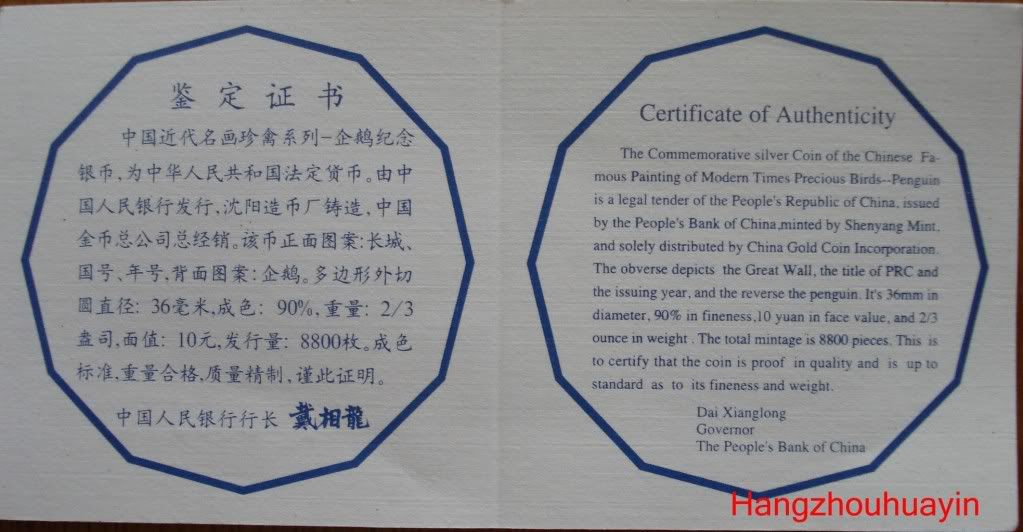 鉴定证书
中国近代名画珍禽系列-企鹅纪念
银币,为中华人民共和国法定货币。由中
国人民银行发行,沈阳造币厂铸造,中国
金币总公司总经销。该币正面图案:长城、
国号、年号,背面图案:企鹅。多边形外切
圆直径: 36毫米,成色: 90%,重量: 2/3
盎司,面值: 10元,发行量: 8800枚。成色
标准,重量合格,质量精制,谨此证明。
中国人民银行行长 戴相龍
Certificate of Authenticity
The Commemorative silver Coin of the Chinese Fa-
mous Painting of Modern Times Precious Birds--Penguin
is a legal tender of the People's Republic of China, issued
by the People's Bank of China,minted by Shenyang Mint,
and solely distributed by China Gold Coin Incorporation.
The obverse depicts the Great Wall, the title of PRC and
the issuing year, and the reverse the penguin. It's 36mm in
diameter, 90% in fineness,10 yuan in face value, and 2/3
ounce in weight . The total mintage is 8800 pieces. This is
to certify that the coin is proof in quality and is up to
standard as to its fineness and weight.
Dai Xianglong
Governor
The People's Bank of China
Hangzhouhuayin